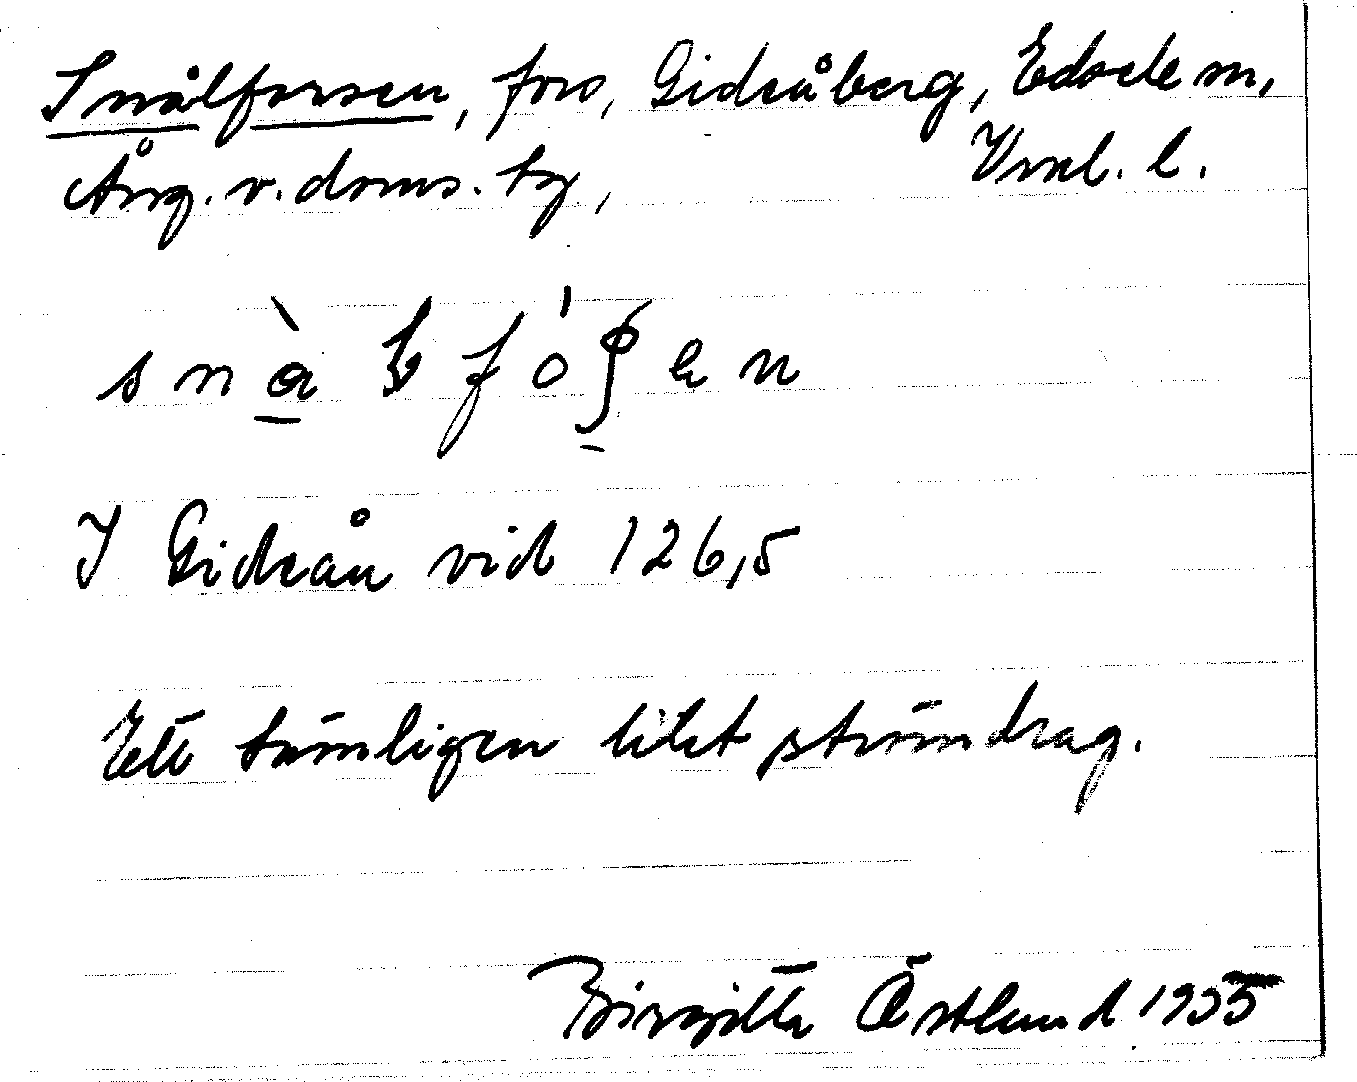 Snålforsen, fors, Gideåberg, Edsele sn,
Ång. v. doms. tg, Vnl. l.
I Gideån vid 126,5
Ett tämligen litet strömdrag.
Birgitta Östlund 1955